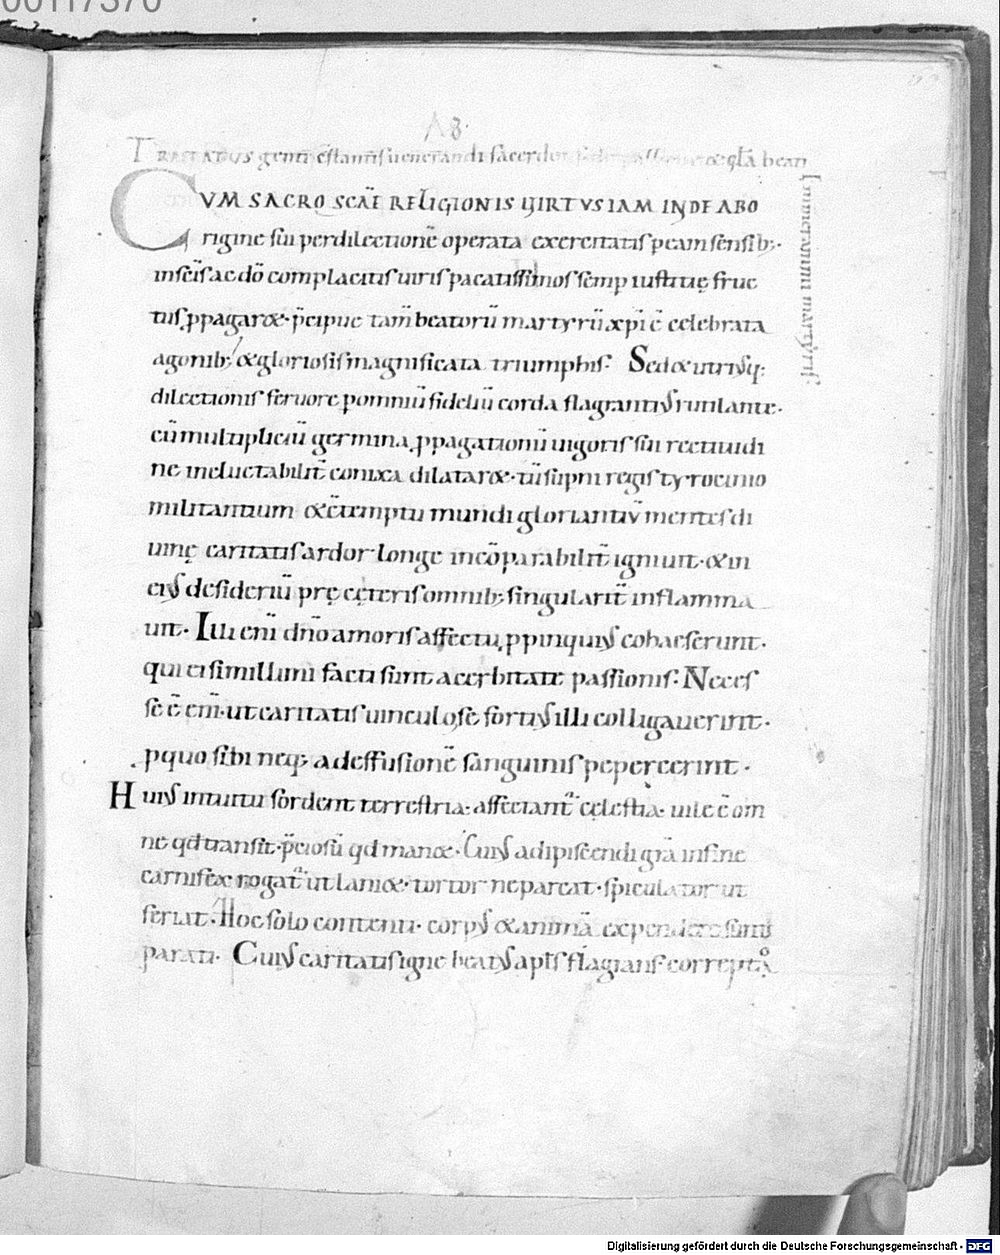 00117370
A 8.
TRACTATUS genti cstantis uenerandi sacerdot passione & gl̄a beati
Emmerammi martyris.
CVM SACRO SCAE̅ RELIGIONIS VIRTVS IAM INDE ABO
rigine sui perdilectionē operata exercitatis peam sensib;.
insc̄is ac dō complacitis uiris pacatissimos semp iustitię fruc
tus ꝓpagar&. p̄cipue tam̄ beatorū martyrū xp̄i ē celebrata
agonib; & gloriosis magnificata triumphis. Sed & utriusq;
dilectionis feruore pomniū fideliū corda flagrantius rutilante.
cū multipliciū germina ꝓpagationū uigoris sui rectitudi
ne ineluctabilit̄ conixa dilatar&. tū supni regis tyrocinio
militantium & cētemptu mundi gloriantiū mentes di
uinę caritatis ardor longe incōparabilit̄ igniuit. & in
eius desideriū prę cęteris omnib; singularit̄ inflamma
uit. Illi enī dn̄o amoris affectu ꝓpinquius cohaeserunt.
qui ei simillimi facti sunt acerbitate passionis. Neces
se ē eni̅. ut caritatis uinculo se fortius illi colligauerint.
pquo sibi neq; ad effusionē sanguinis pepercerint.
Huius intuitu sordent terrestria. affectant̄ cęlestia. uile ē om
ne qd transit. p̄ciosū qd man&. Cuius adipiscendi gr̄a insine
carnifex rogat̄ ut lani&. tortor ne parcat. spiculator ut
feriat. Hoc solo contenti. corpus & animā expendere sunt
parati. Cuius caritatis igne beatus apl̄s flagrans correptos
Digitalisierung gefördert durch die Deutsche Forschungsgemeinschaft - DFG